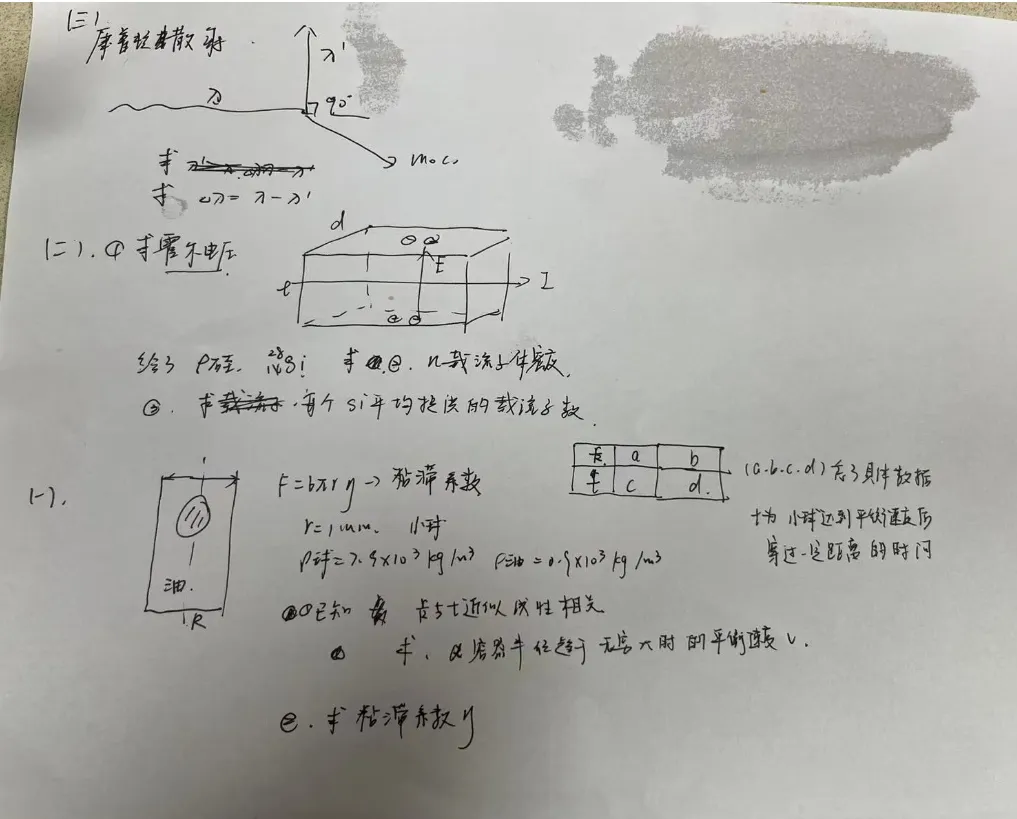 (三)
康普顿散射.
λ'
λ
90°
m₀c.
求
求 Δλ = λ - λ'
(二). ① 求霍尔电压
d
E
t
I
给了 ρ硅. ²⁸₁₄Si 求 ②. n载流子体密度.
③. 求 每个 Si 平均提供的载流子数.
(一).
F=6πrη → 粘滞系数
r=1mm. 小球
ρ球=7.9×10³ kg/m³ ρ油=0.9×10³ kg/m³
油.
R
a b
t c d.
(a.b.c.d) 为了具体数据
t为 小球达到平衡速度后
穿过一定距离的时间
①已知 与t近似线性相关
求. 容器半径趋于无穷大时的平衡速度 v.
②. 求粘滞系数η